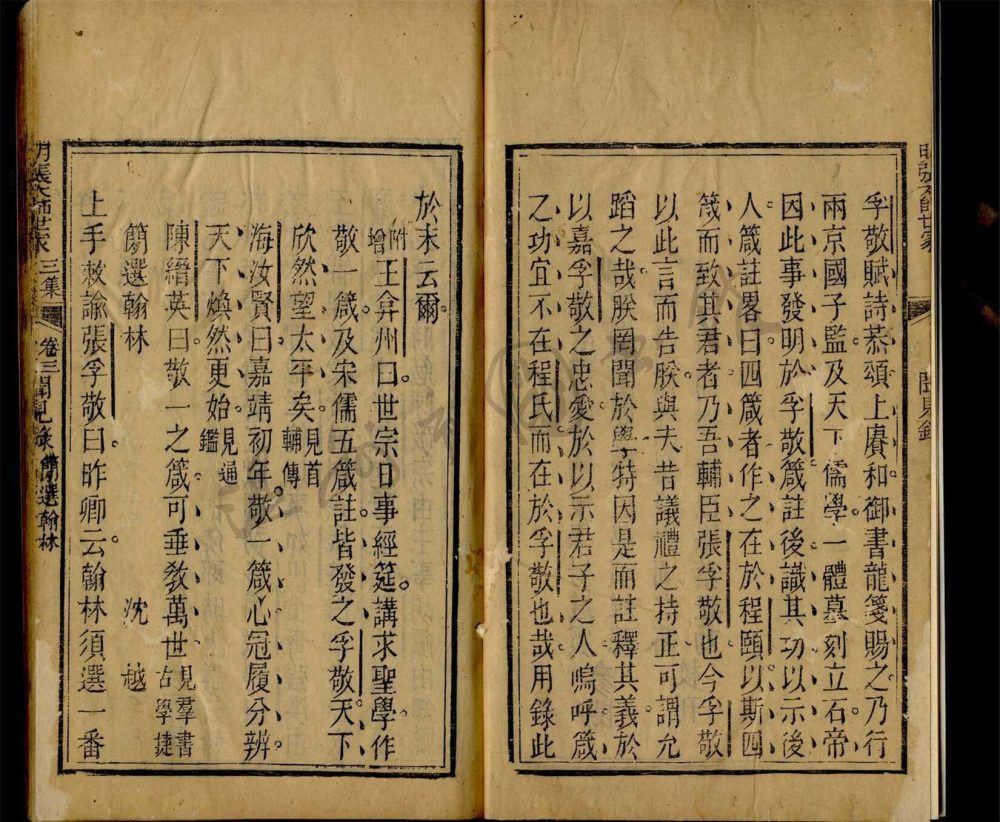 孚敬賦詩恭頌上賡和御書龍箋賜之乃行
兩京國子監及天下儒學一體墓刻立石帝
因此事發明於孚敬箴註後識其功以示後
人箴註畧曰四箴者作之在於程頤以斯四
箴而致其君者乃吾輔臣張孚敬也今孚敬
以此言而告朕與夫昔議禮之持正可謂允
蹈之哉朕罔聞於學特因是而註釋其義於
以嘉孚敬之忠愛於以示君子之人嗚呼箴
之功宜不在程氏而在於孚敬也哉用錄此
於末云爾
附增王弇州曰世宗日事經筵講求聖學作
敬一箴及宋儒五箴註皆發之孚敬天下
欣然望太平矣見首輔傳
海汝賢曰嘉靖初年敬一箴心冠履分辨
天下煥然更始見通鑑
陳縉英曰敬一之箴可垂教萬世見羣書古學捷
簡選翰林 沈越
上手敕諭張孚敬曰昨卿云翰林須選一番
明張文師世家 三集 卷三 聞見錄 簡選翰林